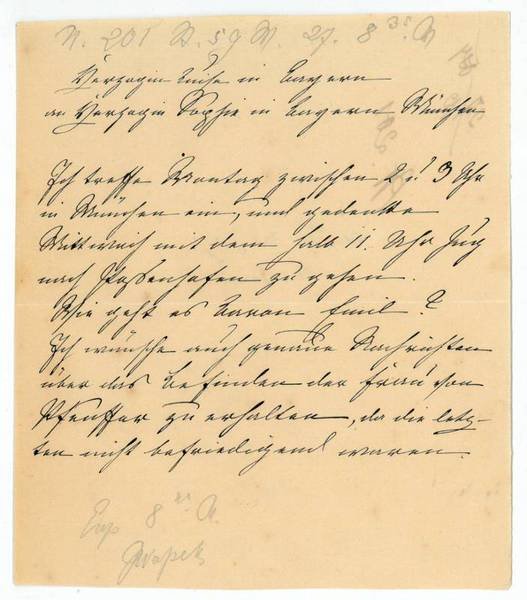 N. 201 W. 59 M. 27. 8 35. A
Herzogin Luise in Bayern
an Herzogin Sophie in Bayern München
Ich treffe Montag zwischen 2 u. 3 Uhr
in München ein, und gedenke
Mittwoch mit dem halb 11. Uhr Zug
nach Possenhofen zu gehen.
Wie geht es Baron Emil?
Ich wünsche auch genaue Nachrichten
über das Befinden der Frau von
Pfeuffer zu erhalten, da die letz-
ten nicht befriedigend waren.
Exp 8 A.